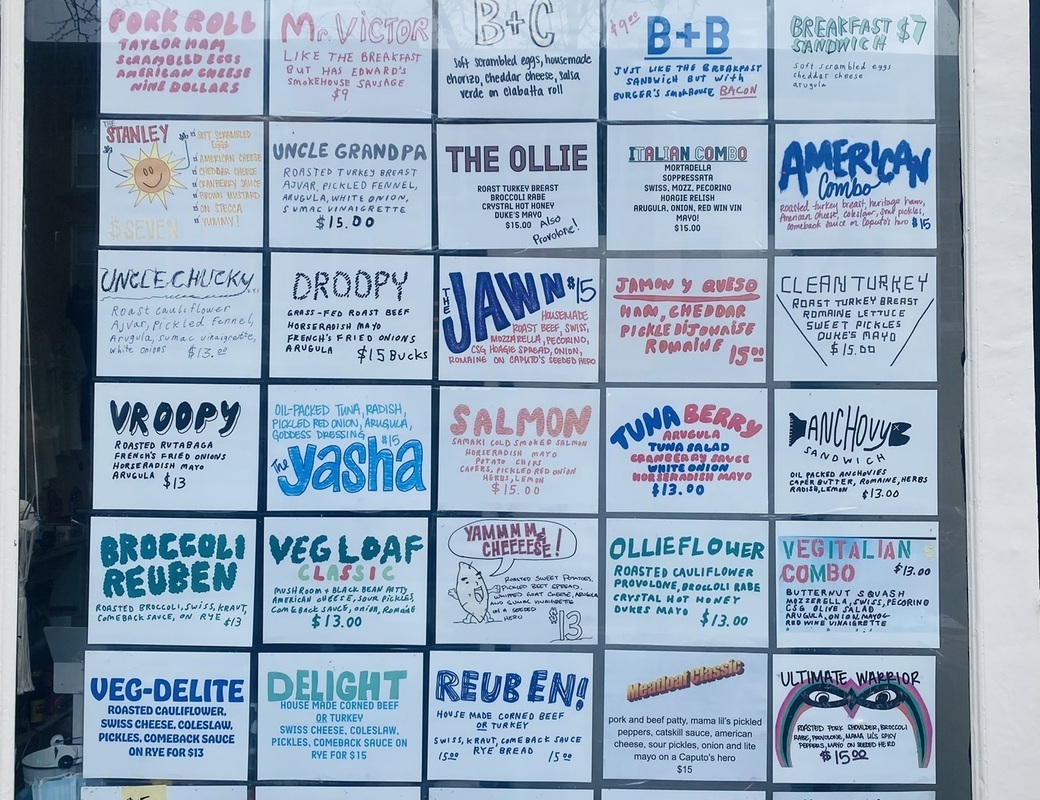 PORK ROLL
TAYLOR HAM
SCRAMBLED EGGS
AMERICAN CHEESE
NINE DOLLARS
Mr. VICTOR
LIKE THE BREAKFAST
BUT HAS EDWARD'S
SMOKEHOUSE SAUSAGE
$9
B+C
Soft scrambled eggs, housemade
chorizo, cheddar cheese, salsa
verde on ciabatta roll
$9.00
B+B
JUST LIKE THE BREAKFAST
SANDWICH BUT WITH
BURGER'S SMOKHOUSE BACON
BREAKFAST $7
SANDWICH
Soft scrambled eggs
cheddar cheese
arugula
THE
STANLEY
SOFT SCRAMBLED
EGGS
AMERICAN CHEESE
CHEDDAR CHEESE
CRANBERRY SAUCE
BROWN MUSTARD
ON STECCA
YUMMY!
$ SEVEN
UNCLE GRANDPA
ROASTED TURKEY BREAST
AJVAR, PICKLED FENNEL,
ARUGULA, WHITE ONION,
SUMAC VINAIGRETTE
$15.00
THE OLLIE
ROAST TURKEY BREAST
BROCCOLI RABE
CRYSTAL HOT HONEY
DUKE'S MAYO
$15.00 Also
Provolone!
ITALIAN COMBO
MORTADELLA
SOPPRESSATA
SWISS, MOZZ, PECORINO
HOAGIE RELISH
ARUGULA, ONION, RED WIN VIN
MAYO!
$15.00
AMERICAN
Combo
Roasted turkey breast, heritage ham,
American cheese, coleslaw, sour pickles,
comeback sauce on Caputo's hero $15
UNCLE CHUCKY
Roast cauliflower
Ajvar, Pickled Fennel,
Arugula, sumac vinaigrette,
white onions $13.00
DROOPY
GRASS-FED ROAST BEEF
HORSERADISH MAYO
FRENCH'S FRIED ONIONS
ARUGULA $15 Bucks
THE JAWN $15
HOUSEMADE
ROAST BEEF, SWISS,
MOZZARELLA, PECORINO,
CSG HOAGIE SPREAD, ONION,
ROMAINE ON CAPUTO'S SEEDED HERO
JAMON Y QUESO
HAM, CHEDDAR
PICKLE DIJONAISE
ROMAINE
15.00
CLEAN TURKEY
ROAST TURKEY BREAST
ROMAINE LETTUCE
SWEET PICKLES
DUKE'S MAYO
$15.00
VROOPY
ROASTED RUTABAGA
FRENCH'S FRIED ONIONS
HORSERADISH MAYO
ARUGULA $13
OIL-PACKED TUNA, RADISH,
PICKLED RED ONION, ARUGULA,
GODDESS DRESSING $15
The yasha
SALMON
SAMAKI COLD SMOKED SALMON
HORSERADISH MAYO
POTATO CHIPS
CAPERS, PICKLED RED ONION
HERBS, LEMON
$15.00
TUNA BERRY
ARUGULA
TUNA SALAD
CRANBERRY SAUCE
WHITE ONION
HORSERADISH MAYO
$13.00
ANCHOVY
SANDWICH
OIL PACKED ANCHOVIES
CAPER BUTTER, ROMAINE, HERBS
RADISH, LEMON $13.00
BROCCOLI
REUBEN
ROASTED BROCCOLI, SWISS, KRAUT,
COMEBACK SAUCE, ON RYE $13
VEG LOAF
CLASSIC
MUSHROOM + BLACK BEAN PATTY
AMERICAN CHEESE, SOUR PICKLES,
COMEBACK SAUCE, ONION, ROMAINE
$13.00
YAMMMM,
CHEEEESE!
ROASTED SWEET POTATOES,
PICKLED BEET SPREAD,
WHIPPED GOAT CHEESE, ARUGULA
AND SUMAC VINAIGRETTE
ON A SEEDED
HERO
$13
OLLIEFLOWER
ROASTED CAULIFLOWER
PROVOLONE, BROCCOLI RABE
CRYSTAL HOT HONEY
DUKES MAYO
$13.00
VEGITALIAN
COMBO $13.00
BUTTERNUT SQUASH
MOZZERELLA, SWISS, PECORINO
CSG OLIVE SALAD
ARUGULA, ONION, MAYO
RED WINE VINAIGRETTE
VEG-DELITE
ROASTED CAULIFLOWER,
SWISS CHEESE, COLESLAW,
PICKLES, COMEBACK SAUCE
ON RYE FOR $13
DELIGHT
HOUSE MADE CORNED BEEF
OR TURKEY
SWISS CHEESE, COLESLAW,
PICKLES, COMEBACK SAUCE ON
RYE FOR $15
REUBEN!
HOUSE MADE CORNED BEEF
OR TURKEY
SWISS, KRAUT, COMEBACK SAUCE
15.00 RYE BREAD 15.00
Meatloaf Classic
pork and beef patty, mama lil's pickled
peppers, catskill sauce, american
cheese, sour pickles, onion and lite
mayo on a Caputo's hero
$15
ULTIMATE WARRIOR
ROASTED PORK SHOULDER, BROCCOLI
RABE, PROVOLONE, MAMA LIL'S SPICY
PEPPERS, MAYO ON SEEDED HERO
$15.00